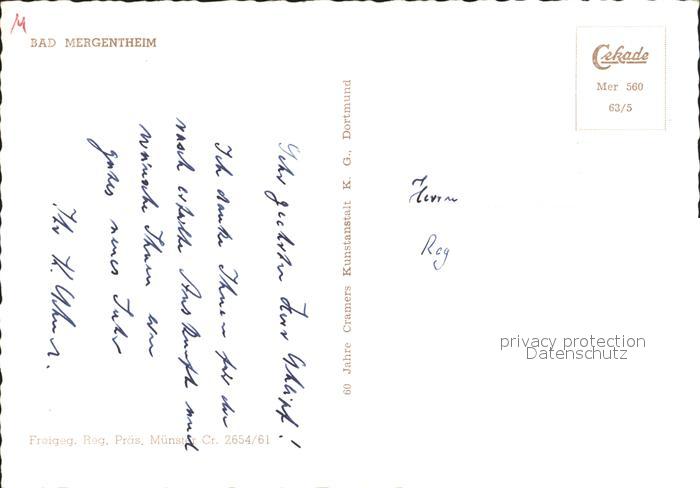 M
BAD MERGENTHEIM
Cekade
Mer 560
63/5
60 Jahre Cramers Kunstanstalt K. G., Dortmund
Sehr geehrter Herr
Ich danke Ihnen für die
rasch erteilte Auskunft und
wünsche Ihnen ein
gutes neues Jahr
Ihr
Herrn
Reg
privacy protection
Datenschutz
Freigeg. Reg. Präs. Münster Cr. 2654/61